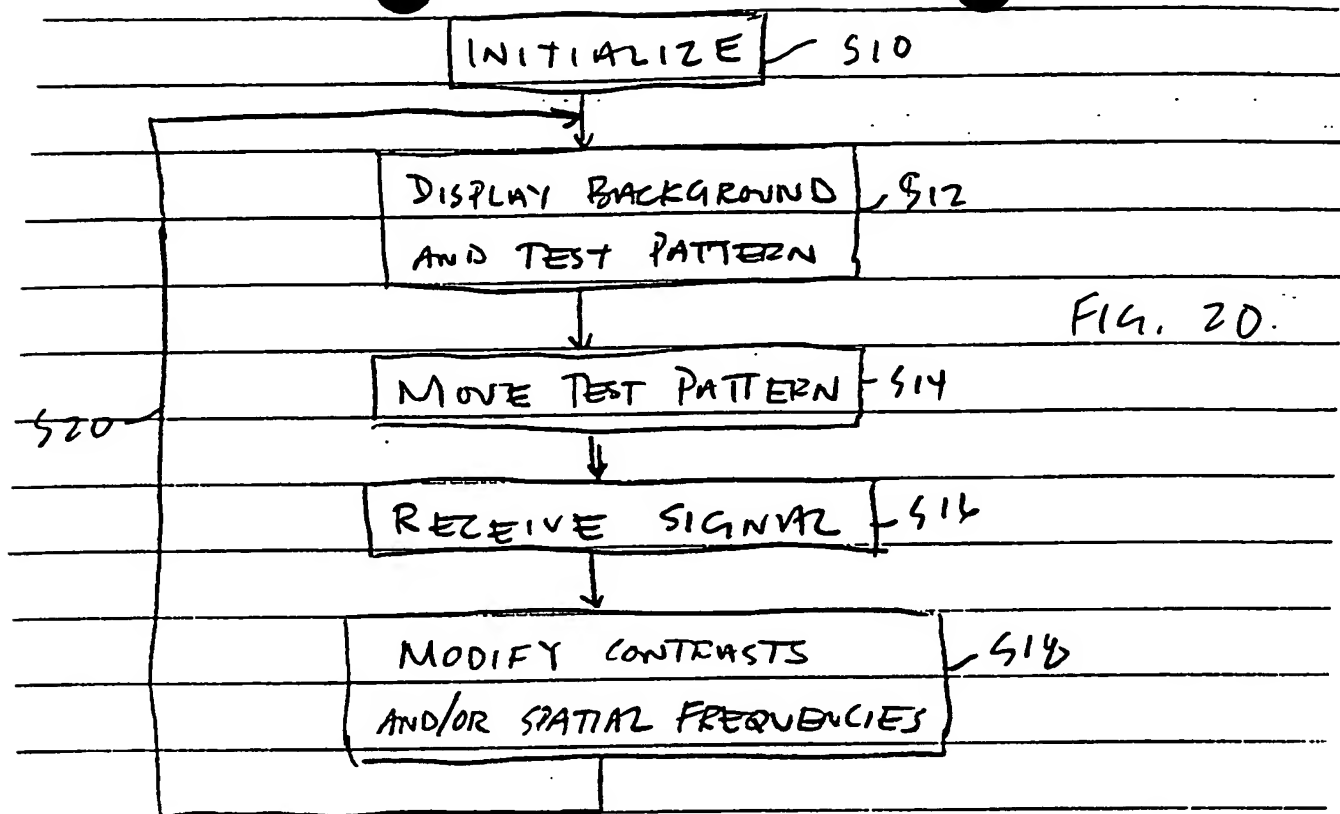 INITIALIZE S10
DISPLAY BACKGROUND S12
AND TEST PATTERN
FIG. 20.
MOVE TEST PATTERN S14
S20
RECEIVE SIGNAL S16
MODIFY CONTRASTS S18
AND/OR SPATIAL FREQUENCIES